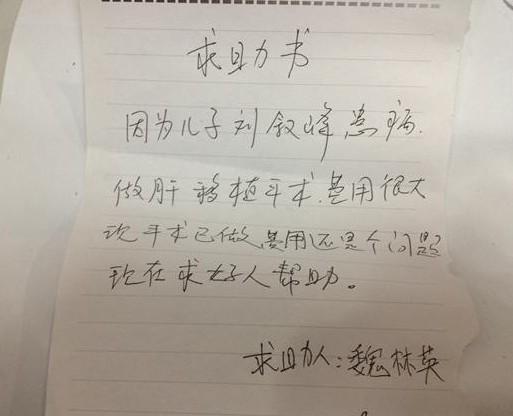 求助书
因为儿子刘叙峰患病.
做肝移植手术.费用很大
现手术已做.费用还是个问题
现在求好人帮助。
求助人:魏林英